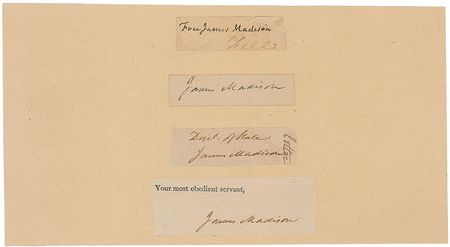 Free James Madison
Free
James Madison
Dept. of State
James Madison
Your most obedient servant,
James Madison